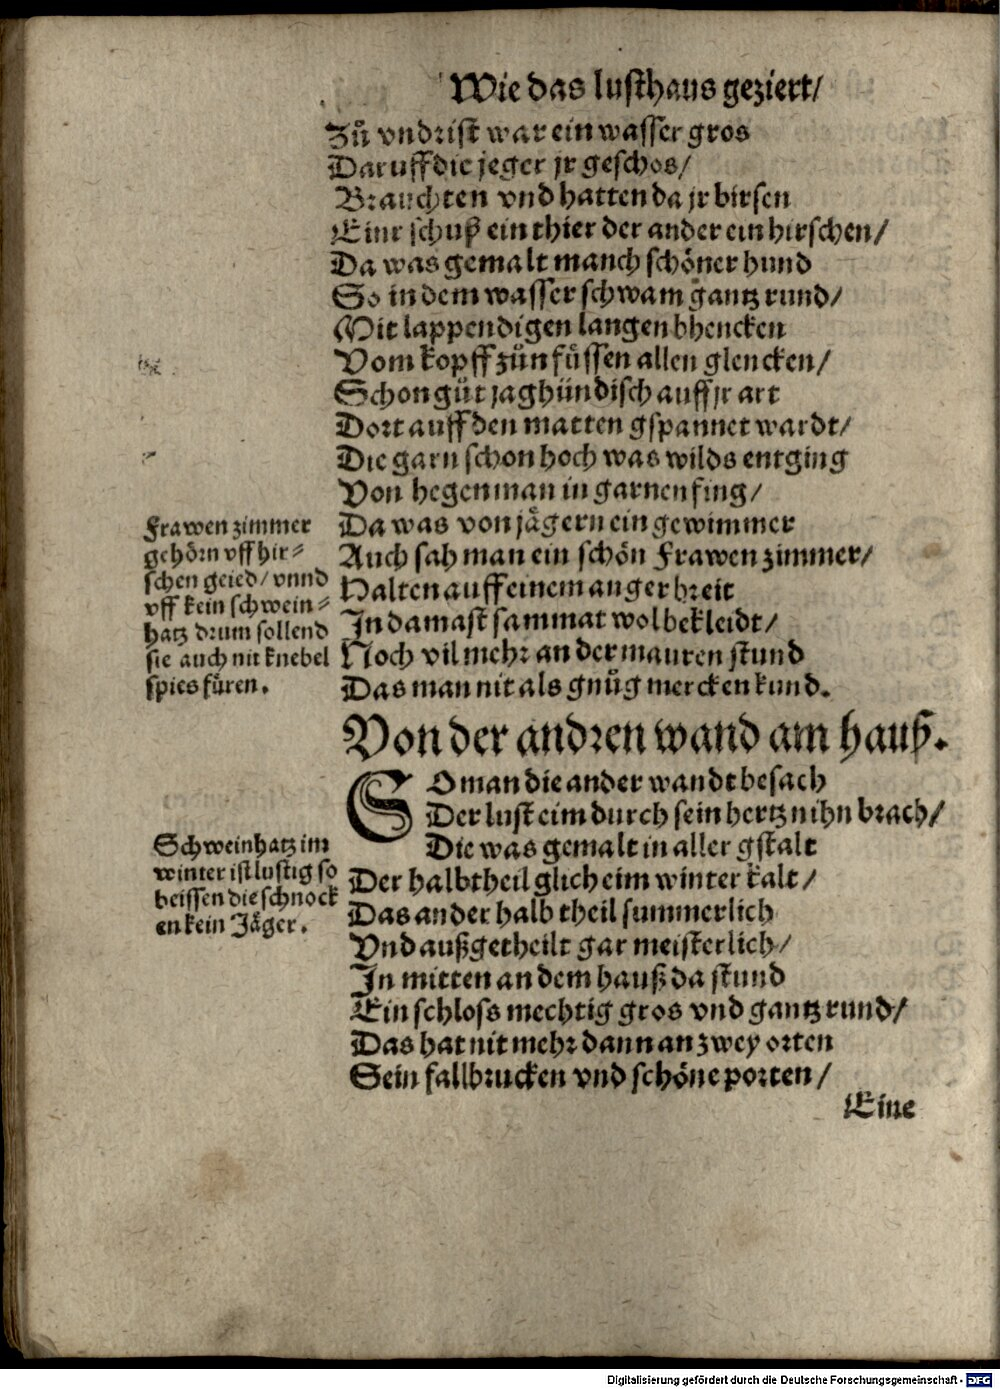 Wie das lusthaus geziert/
Zů vndrist war ein wasser gros
Daruff die jeger jr geschos/
Brauchten vnd hatten da jr birsen
Einr schuß ein thier der ander ein hirschen/
Da was gemalt manch schöner hund
So in dem wasser schwam gantz rund/
Mit lappendigen langen bhencken
Vom kopff zůn fůssen allen glencken/
Schon gůt jaghündisch auff jr art
Dort auff den matten gspannet wardt/
Die garn schon hoch was wilds entging
Von hegen man in garnen fing/
Da was von jägern ein gewimmer
Auch sah man ein schön Frawen zimmer/
Halten auff einem anger breit
In damast sammat wol bekleidt/
Noch vil mehr an der mauren stund
Das man nit als gnůg mercken kund.
Frawen zimmer
gehörn vff hir-
schen geied/ vnnd
vff kein schwein-
hatz drum sollend
sie auch nit knebel
spies füren.
Von der andren wand am hauß.
SO man die ander wandt besach
Der lust eim durch sein hertz nihn brach/
Die was gemalt in aller gstalt
Der halbtheil glich eim winter kalt/
Das ander halb theil summerlich
Vnd außgetheilt gar meisterlich/
In mitten an dem hauß da stund
Ein schloss mechtig gros vnd gantz rund/
Das hat nit mehr dann an zwey orten
Sein fallbrucken vnd schöne porten/
Schweinhatz im
winter ist lustig so
beissen die schnock
en kein Jäger.
Eine
Digitalisierung gefördert durch die Deutsche Forschungsgemeinschaft - DFG